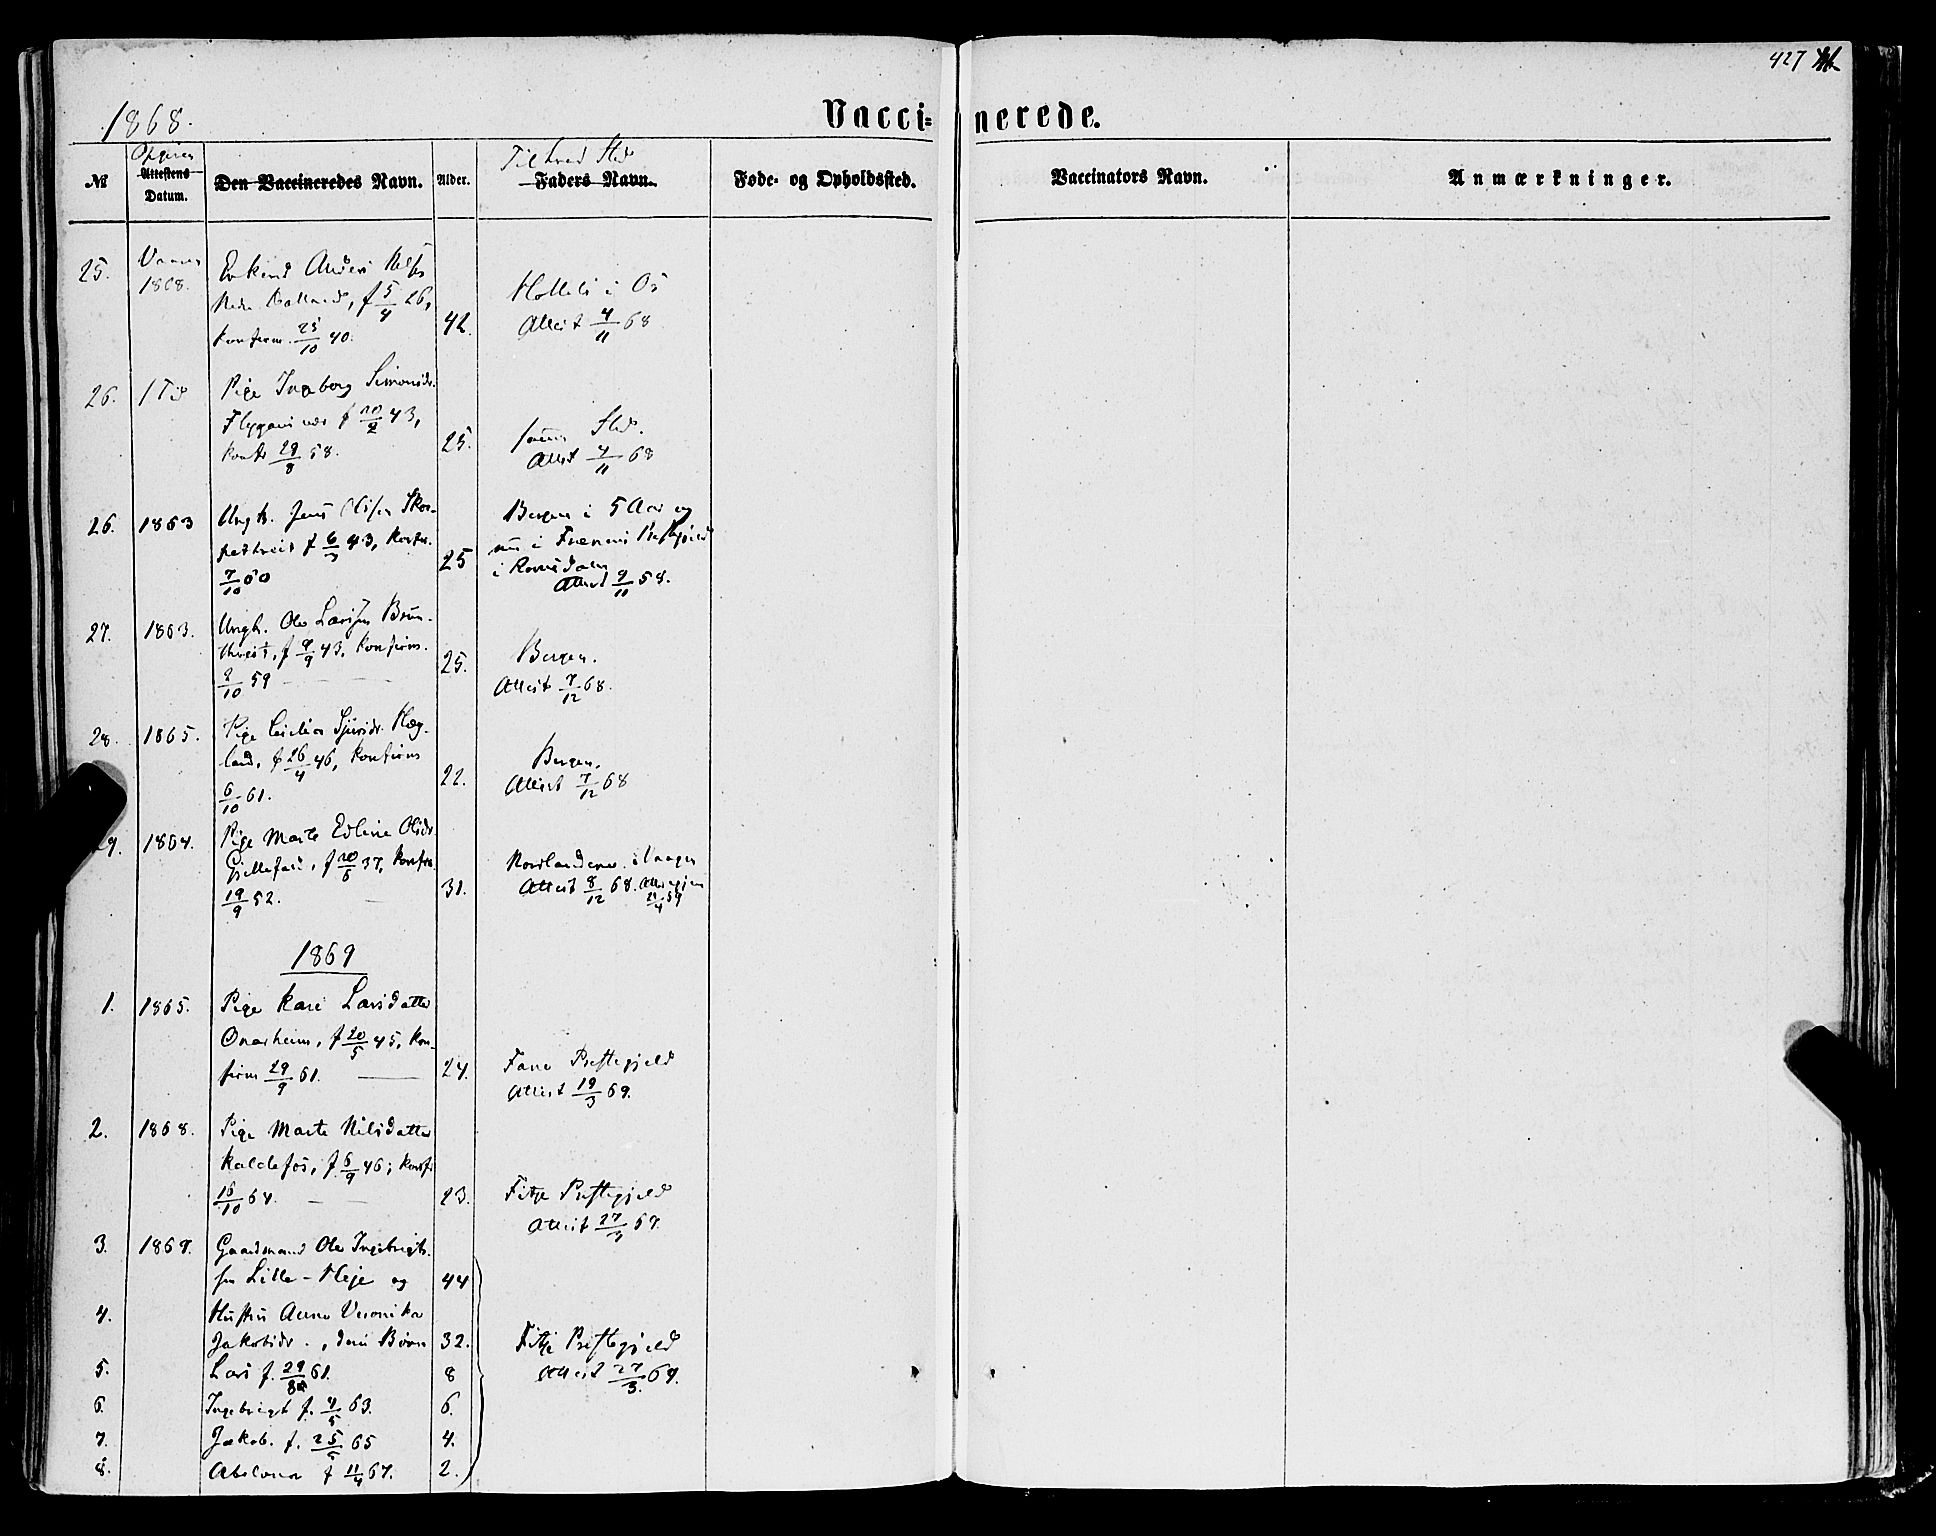 427
1868.
Vacci= nerede.
Opgiven
Til hvad Sted
№
Attestens Datum.
Den Vaccineredes Navn.
Alder.
Faders Navn.
Føde- og Opholdssted.
Vaccinators Navn.
Anmærkninger.
25.
1868.
f 5/4 26,
konfirm. 25/10 40.
42.
i Os
Attest 4/11 68
26.
Pige Ingeborg Simonsdr.
f 10/2 43,
konf. 29/8 58.
25.
Sted.
Attest 4/11 68
26.
1863
Ungk. Jens Olsen Skor-
f 6/3 43, konfir.
7/10 60
25
Bergen i 5 Aar og
nu i Fræneni Prestegjeld
i Romsdalen
Attest 9/11 68.
27.
1863.
Ungk. Ole Larsen Brun-
f 9/9 43, konfirm.
2/10 59
25.
Bergen.
Attest 7/12 68.
28.
1865.
Pige Sjursdr. Hæg-
land, f 26/4 46, konfirm
6/10 61.
22.
Bergen.
Attest 7/12 68
29.
1864.
Pige Marte Edline Olsdr.
f 20/6 37, konfir.
19/9 52.
31.
Nordlandene i Vaagen
Attest 8/12 68.
1869
1.
1865.
Pige Kari Larsdatter
Onarheim, f 20/5 45, kon-
firm 29/9 61.
24.
Fane Prestegjeld
Attest 19/3 69.
2.
1868.
Pige Marte Nilsdatter
Kaldefos, f. 6/9 46, konf.
16/10 64.
23.
Fitje Prestegjeld
Attest 27/3 69.
3.
1869.
Gaardmand Ole Ingebrigt-
sen Lille-Hleje og
44
4.
Hustru Anna Veronika
Jakobsdr., deres Børn
32.
Fitje Prestegjeld
Attest 27/3. 69.
5.
Lars f. 29/8 61.
8
6.
Ingebrigt f. 4/5 63.
6.
7.
Jakob. f. 25/5 65
4.
8.
Abelona f 11/4 67.
2.